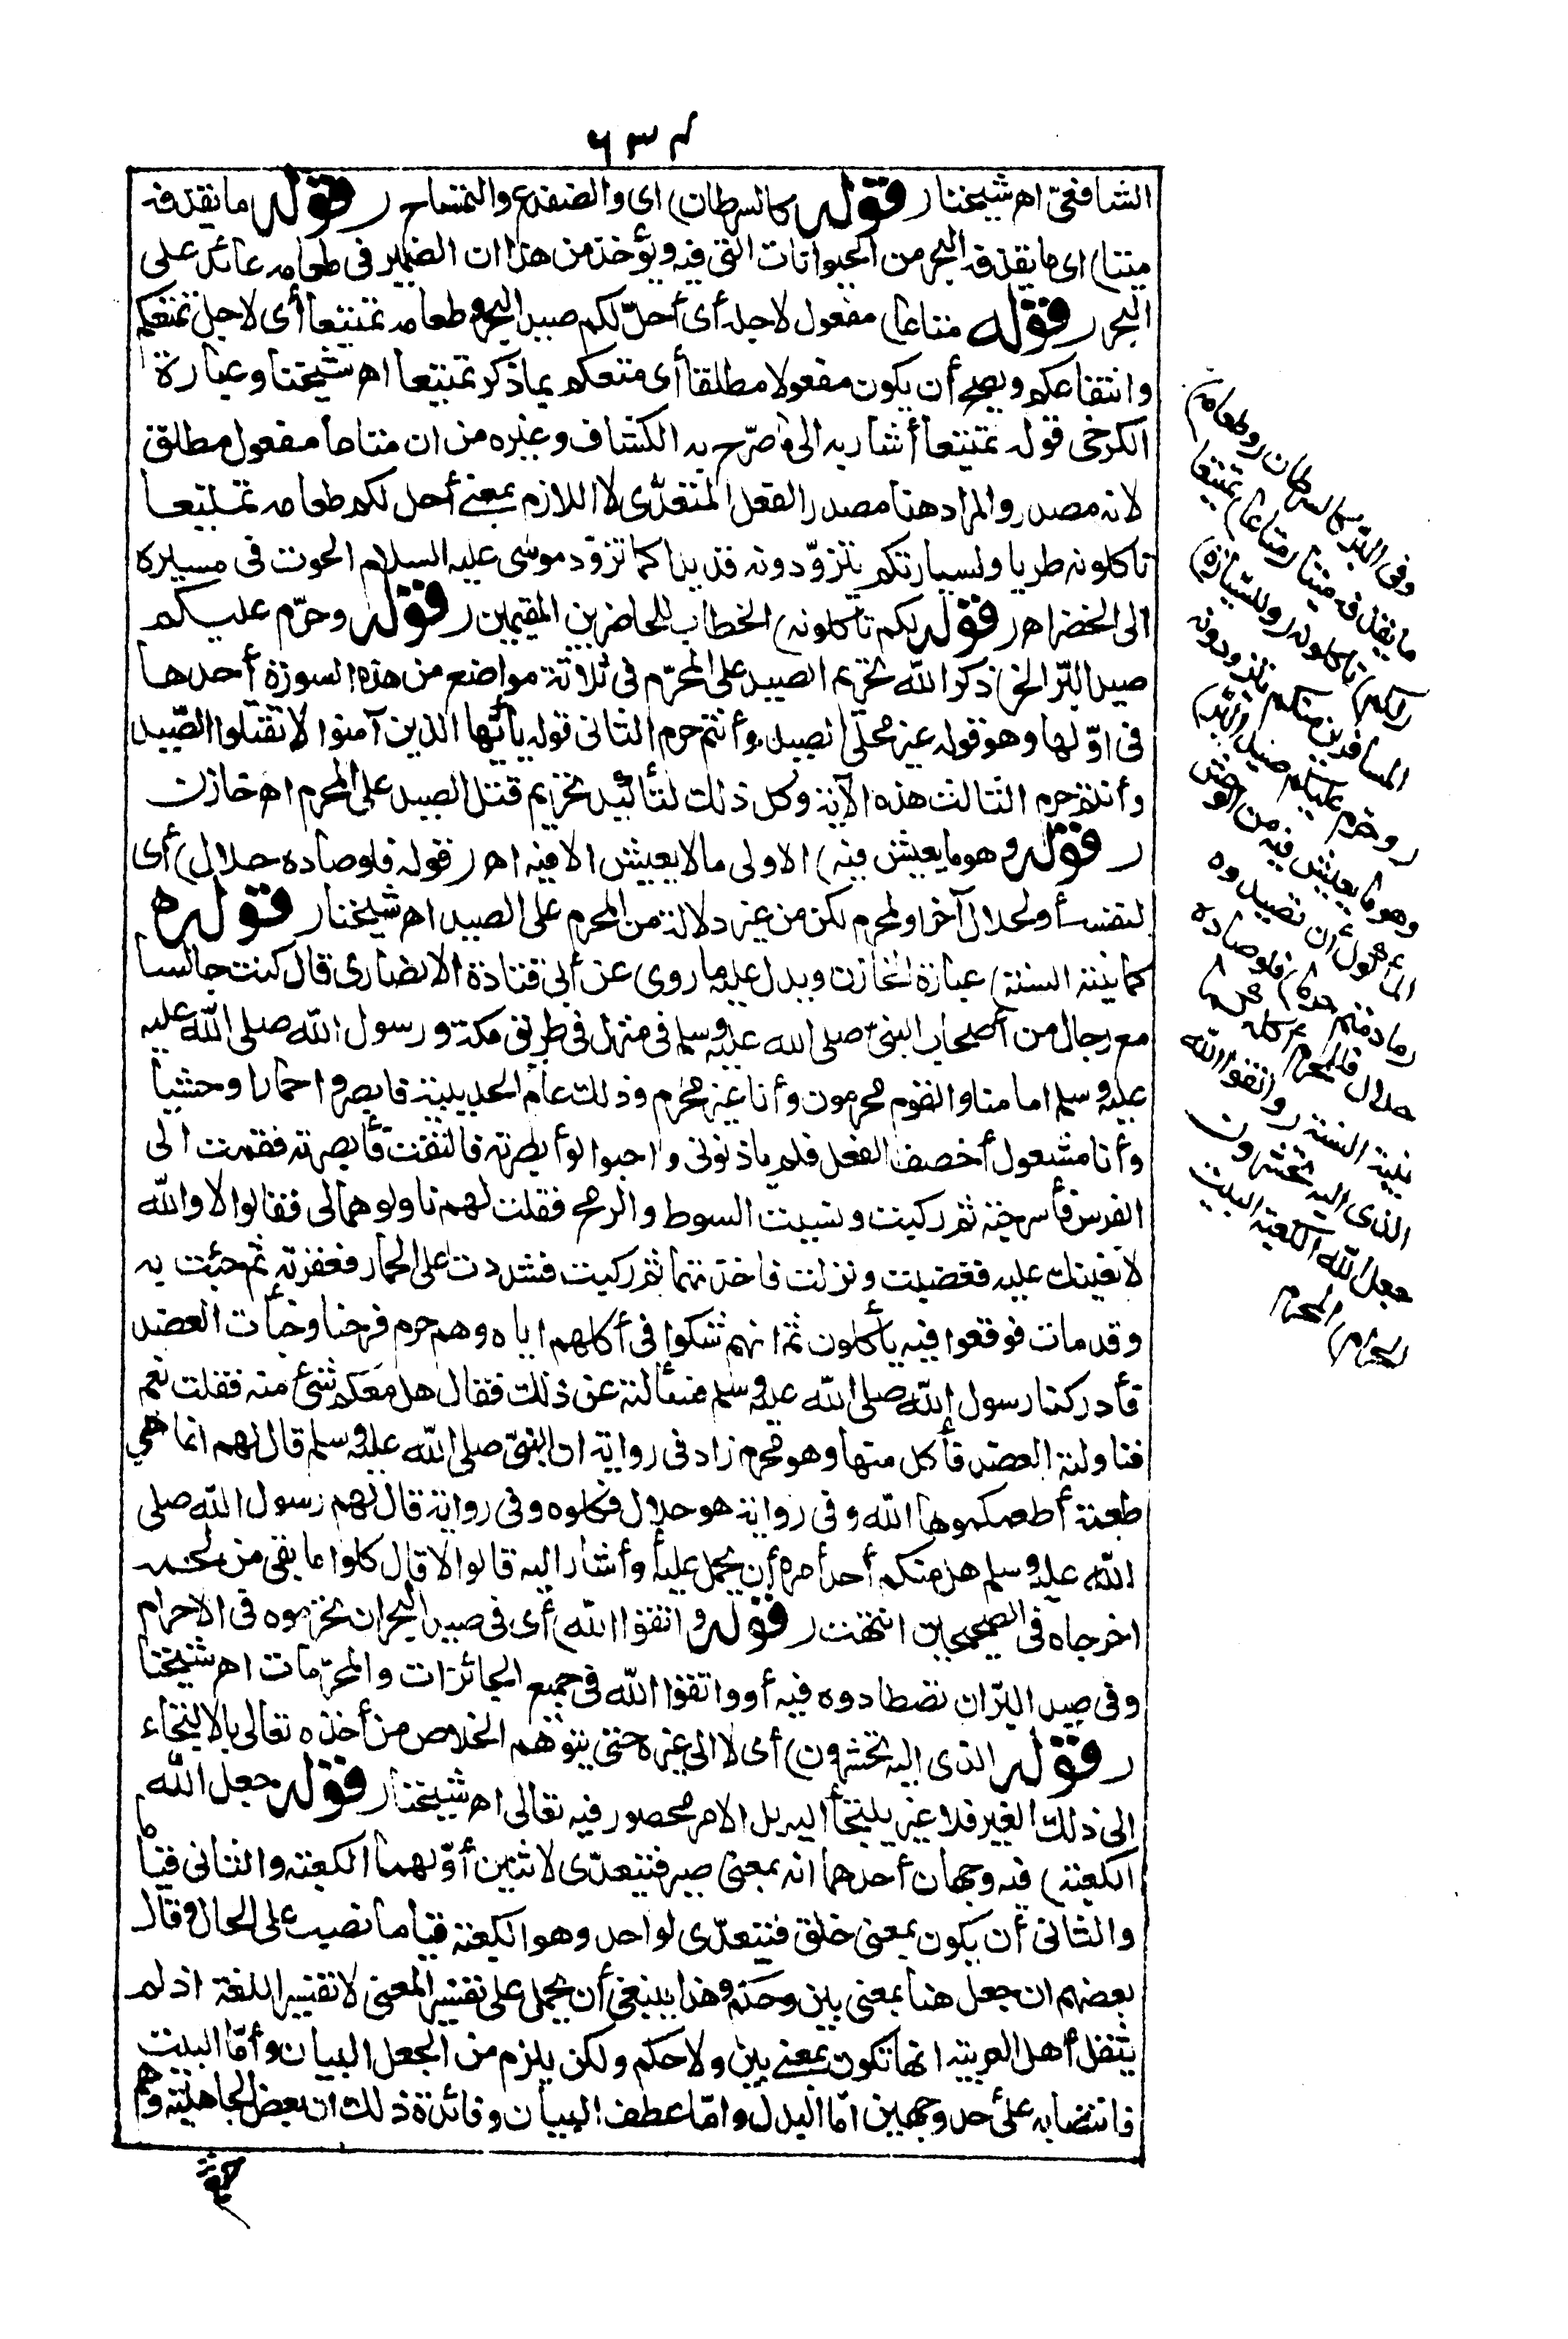 ٦٣٤
الشافعيّ اهـ شيخنا ( قوله كالسرطان) اى والضفدع والتمساح ( قوله ما يقذفه
ميتا) اى ما يقذفه البحر من الحيوانات التى فيه ويؤخذ من هذا ان الضمير فى طعامه عائد على
البحر ( قوله متاعا) مفعول لاجله أى أحلّ لكم صيد البحر وطعامه تمتيعا أى لاجل تمتعكم
وانتفاعكم ويصح أن يكون مفعولا مطلقا أى متعكم بما ذكر تمتيعا اهـ شيخنا وعبارة
الكرخى قوله تمتيعا أشار به الى ما صرّح به الكشاف وغيره من ان متاعا مفعول مطلق
لانه مصدر والمراد هنا مصدر الفعل المتعدّى لا اللازم بمعنى أحل لكم طعامه تمتيعا
تاكلونه طريا ولسيارتكم يتزوّدونه قديدا كما تزوّد موسى عليه السلام الحوت فى مسيره
الى الخضر اهـ ( قوله لكم تأكلونه) الخطاب للحاضرين المقيمين ( قوله وحرّم عليكم
صيد البّر الخ) ذكر الله تحريم الصيد على المحرّم فى ثلاثة مواضع من هذه السورة أحدها
فى اوّلها وهو قوله غير محلى الصيد وأنتم حرم الثانى قوله يأيّها الذين آمنوا لا تقتلوا الصّيد
وأنتم حرم الثالث هذه الآية وكل ذلك لتأكيد تحريم قتل الصيد على المحرم اهـ خازن
( قوله وهو ما يعيش فيه) الاولى ما لا يعيش الا فيه اهـ ( قوله فلو صاده حلال) أى
لنفسه أو لحلال آخر او لمحرم لكن من غير دلالة من المحرم على الصيد اهـ شيخنا ( قوله
كما بينته السنة) عبارة الخازن ويدل عليه ما روى عن أبى قتادة الانصارى قال كنت جالسا
مع رجال من أصحاب النبىّ صلى الله عليه وسلم فى منزل فى طريق مكة ورسول الله صلى الله عليه
عليه وسلم امامنا والقوم محرمون وأنا غير محرم وذلك عام الحديبية فابصروا حمارا وحشيا
وأنا مشغول أخصف النعل فلم يأذنونى واحبوا لو أبصرته فالتفت فأبصرته فقمت الى
الفرس فأسرجته ثم ركبت ونسيت السوط والرمح فقلت لهم ناولوهما لى فقالوا لا والله
لا نعينك عليه فغضبت ونزلت فاخذتهما ثم ركبت فشددت على الحمار فعقرته ثم جئت به
وقد مات فوقعوا فيه يأكلون ثم انهم شكوا فى أكلهم اياه وهم حرم فرحنا وخبأت العضد
فأدركنا رسول الله صلى الله عليه وسلم فسألته عن ذلك فقال هل معكم شئ منه فقلت نعم
فناولته العضد فأكل منها وهو محرم زاد فى رواية ان النبىّ صلى الله عليه وسلم قال لهم انما هى
طعمة أطعمكموها الله وفى رواية هو حلال فكلوه وفى رواية قال لهم رسول الله صلى
الله عليه وسلم هل منكم أحد أمره أن يحمل عليه أو أشار اليه قالوا لا قال كلوا ما بقى من لحمه
اخرجاه فى الصحيحين انتهت ( قوله واتقوا الله) أى فى صيد البحر ان تحرّموه فى الاحرام
وفى صيد البرّ ان تصطادوه فيه أو واتقوا الله فى جميع الجائزات والمحرّمات اهـ شيخنا
( قوله الذى اليه تحشرون) أى لا الى غيره حتى يتوهّم الخلاص من أخذه تعالى بالالتجاء
الى ذلك الغير فلا غير يلتجأ اليه بل الامر محصور فيه تعالى اهـ شيخنا ( قوله جعل الله
الكعبة) فيه وجهان أحدهما انه بمعنى صير فتتعدّى لاثنين أوّلهما الكعبة والثانى قياما
والثانى أن يكون بمعنى خلق فتتعدّى لواحد وهو الكعبة قياما نصب على الحال وقال
بعضهم ان جعل هنا بمعنى بين وحكم وهذا ينبغى أن يحمل على تفسير المعنى لا تفسير اللغة اذ لم
ينقل أهل العربية انها تكون بمعنى بين ولا حكم ولكن يلزم من الجعل البيان وأمّا البيت
فانتصابه على أحد وجهين امّا البدل وامّا عطف البيان وفائدة ذلك ان بعض الجاهلية وهم
وفى البّر كالسرطان (وطعامه)
ما يقذفه ميتا (متاعا) تمتيعا
(لكم) تاكلونه (وللسيّارة)
المسافرين منكم يتزودونه
(وحرم عليكم صيد البّر)
وهو ما يعيش فيه من الوحش
المأكول أن تصيدوه
(ما دمتم حرما) فلو صاده
حلال فللمحرم أكله كما
بينته السنة (واتقوا الله
الذى اليه تحشرون
جعل الله الكعبة البيت
الحرام) المحرم